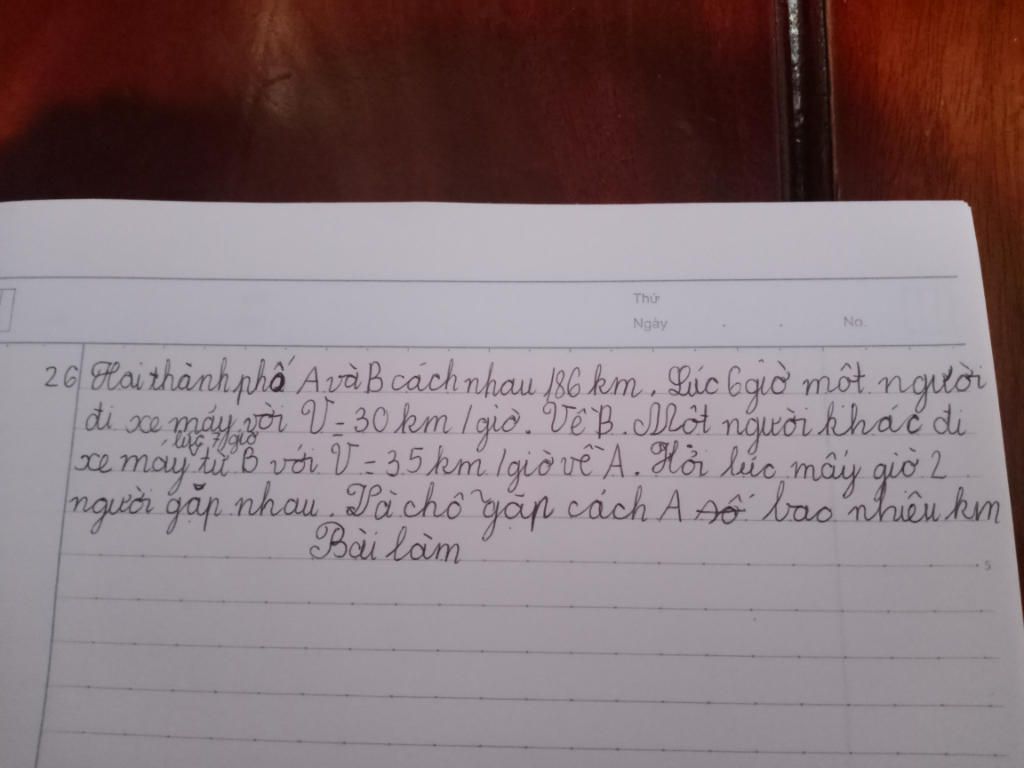 Thứ
Ngày . . No.
26 Hai thành phố A và B cách nhau 186 km. Lúc 6 giờ một người
đi xe máy với V = 30 km/giờ. Về B. Một người khác đi
lúc 7 giờ
xe máy từ B với V = 35 km/giờ về A. Hỏi lúc mấy giờ 2
người gặp nhau. Và chỗ gặp cách A bao nhiêu km
Bài làm
5